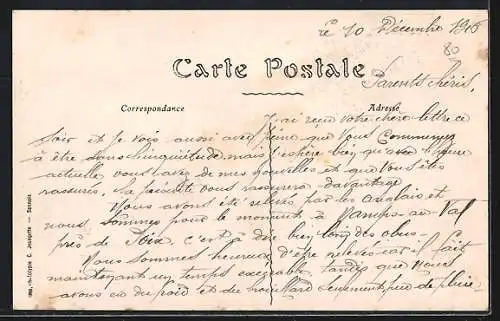 le 10 Décembre 1916
80
Carte Postale
Parents chéris,
Correspondance
Adresse
J'ai reçu votre chère lettre ce
soir et je vois aussi avec peine que vous Commencez
à être dans l'inquiétude, mais j'espère bien qu'à
actuelle vous avez de mes nouvelles et que vous êtes
rassurés. La présente vous rassurera davantage
Nous avons été relevés par les anglais et
nous sommes pour le moment à Namps-au-Val
près de Poix, c'est à dire bien loin des obus.
Nous sommes heureux d'être relevés car il fait
maintenant un temps exécrable tandis que nous
avons eu du froid et du brouillard seulement peu de pluie